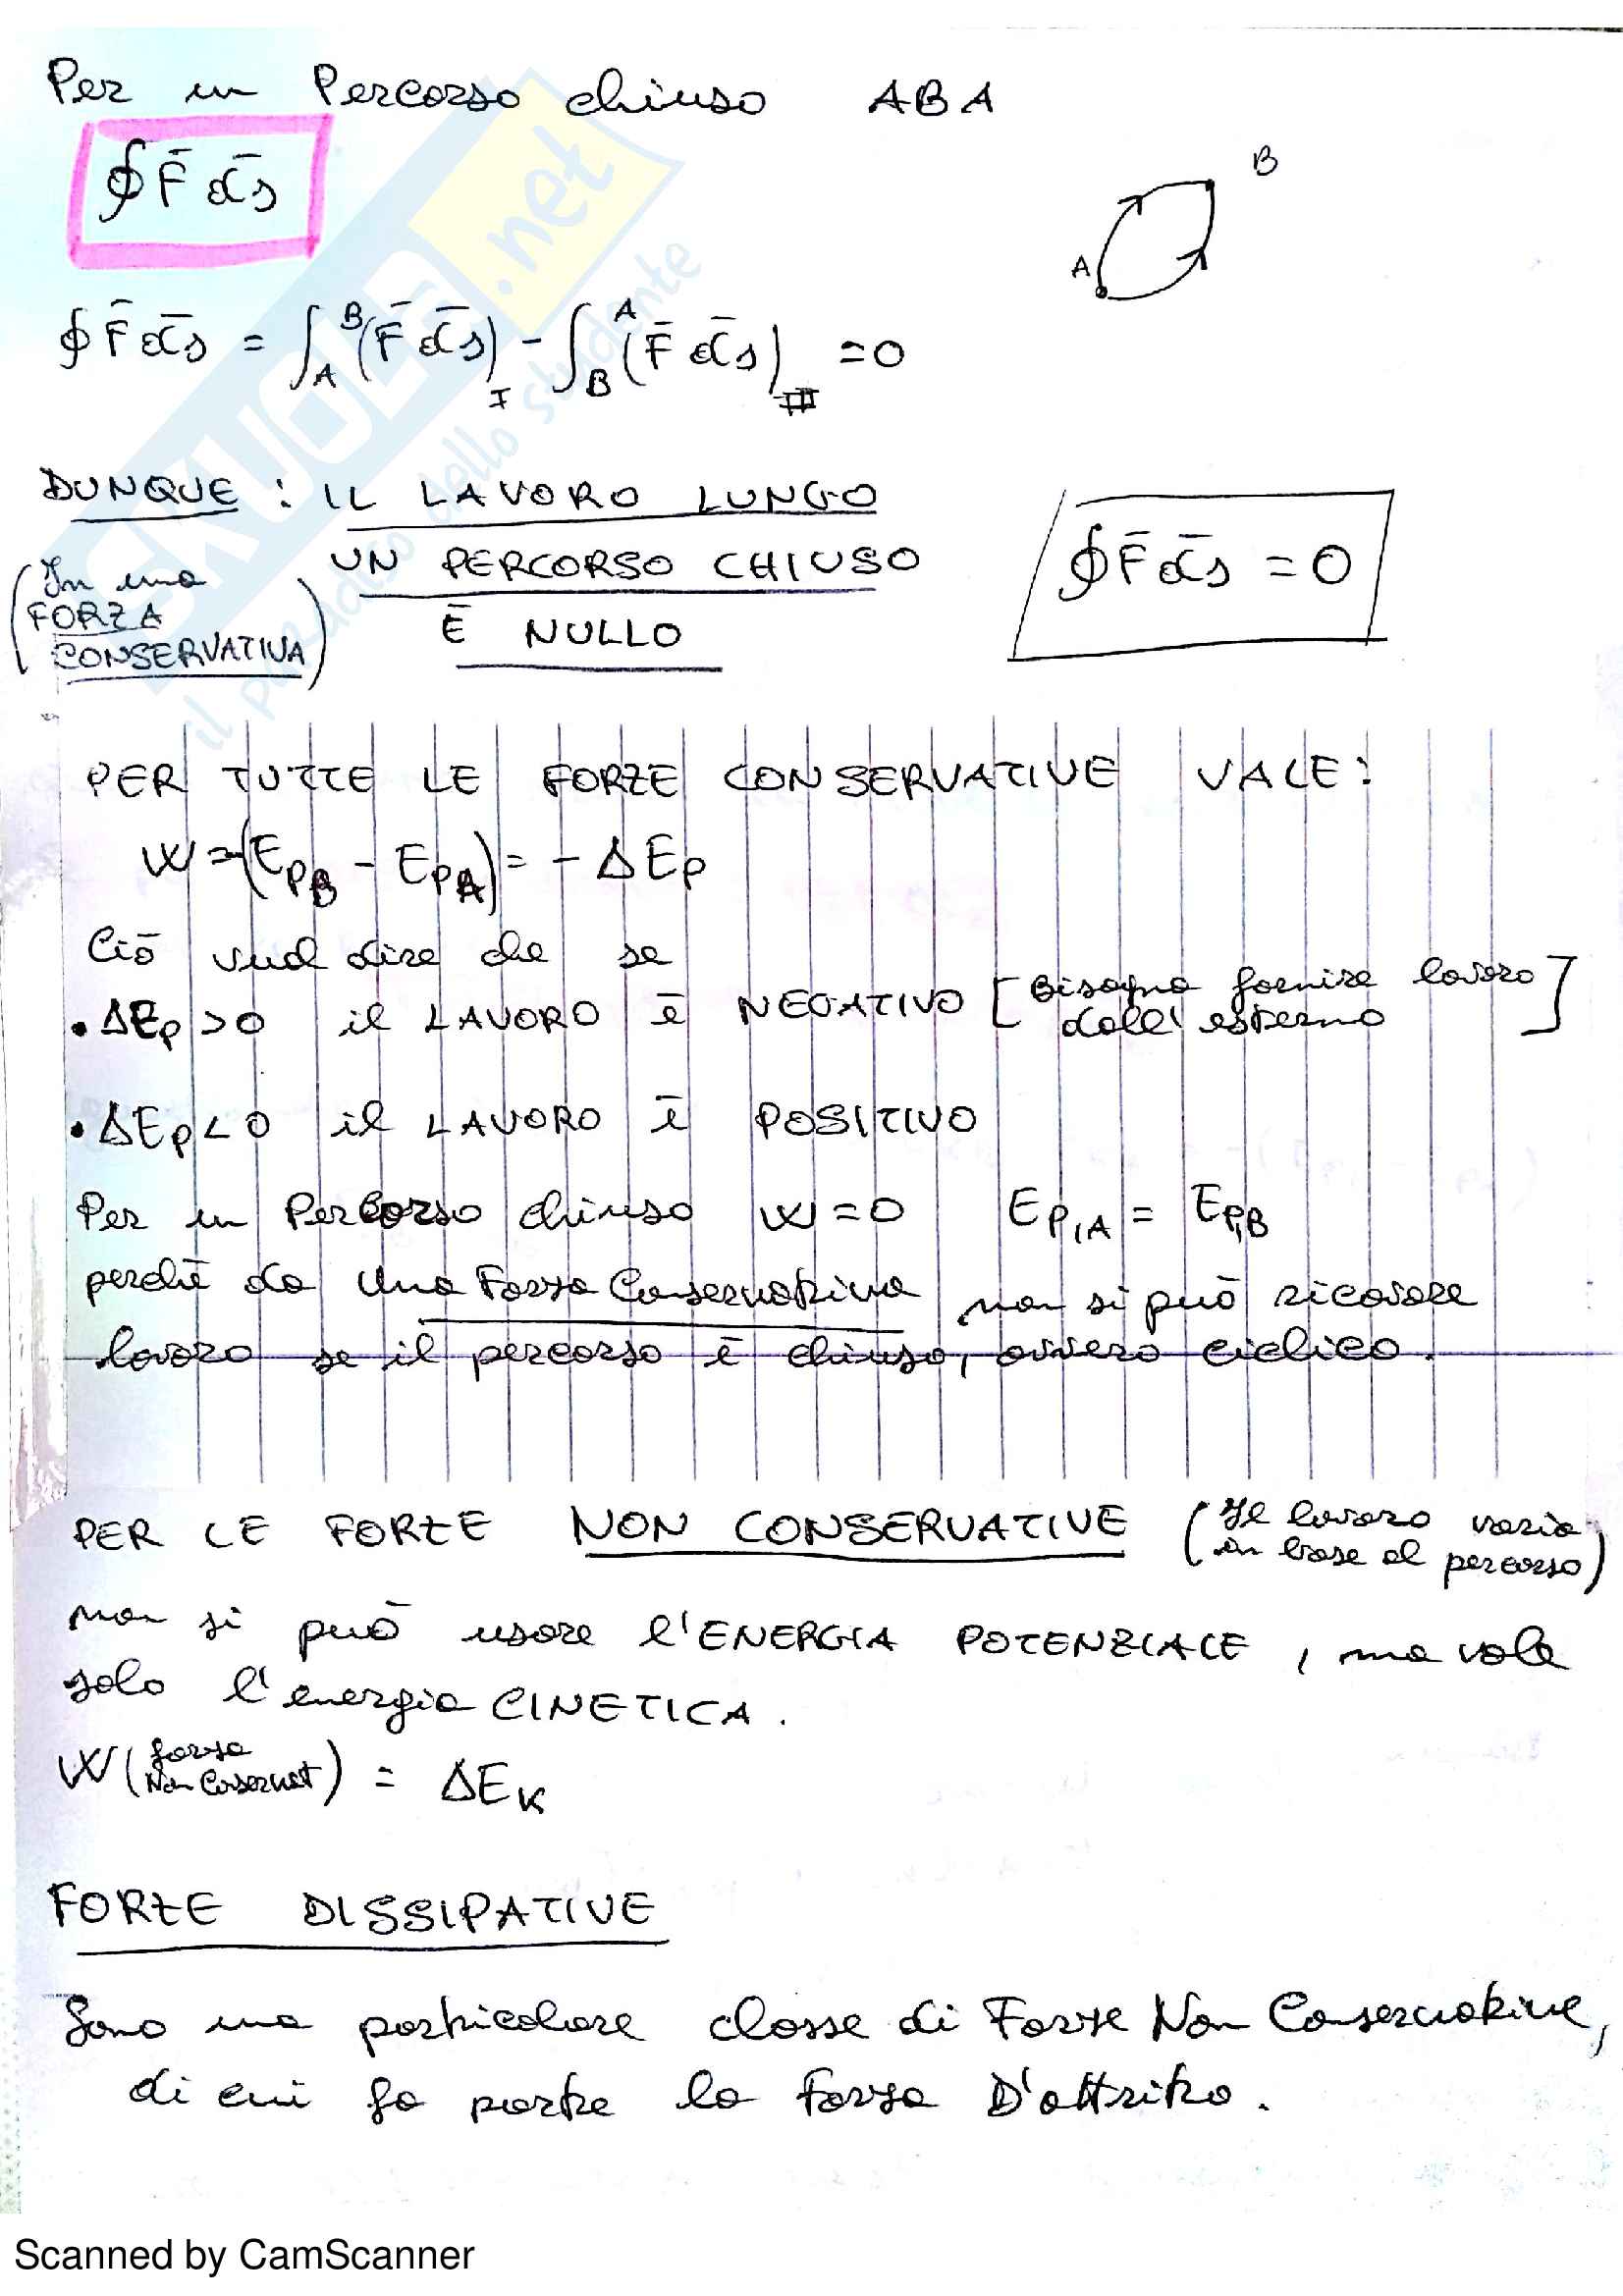 Per un Percorso chiuso ABA
∮ F̄ d̄s
B
A
∮ F̄ d̄s = ∫_A^B (F̄ d̄s)_I - ∫_B^A (F̄ d̄s)_II = 0
DUNQUE : IL LAVORO LUNGO
UN PERCORSO CHIUSO
È NULLO
(In una
FORZA
CONSERVATIVA)
∮ F̄ d̄s = 0
PER TUTTE LE FORZE CONSERVATIVE VALE:
W = -(E_PB - E_PA) = - ΔE_P
Ciò vuol dire che se
• ΔE_P > 0 il LAVORO è NEGATIVO [Bisogna fornire lavoro
dall' esterno]
• ΔE_P < 0 il LAVORO è POSITIVO
Per un Percorso chiuso W = 0 E_P,A = E_P,B
perchè da una Forza Conservativa non si può ricavare
lavoro se il percorso è chiuso, ovvero ciclico.
PER LE FORZE NON CONSERVATIVE (Il lavoro varia
in base al percorso)
non si può usare l'ENERGIA POTENZIALE, ma vale
solo l'energia CINETICA.
W (forza
Non Conservat) = ΔE_K
FORZE DISSIPATIVE
Sono una particolare classe di Forze Non Conservative,
di cui fa parte la Forza D'attrito.
SKUOLA.net
il paradiso dello studente
Scanned by CamScanner